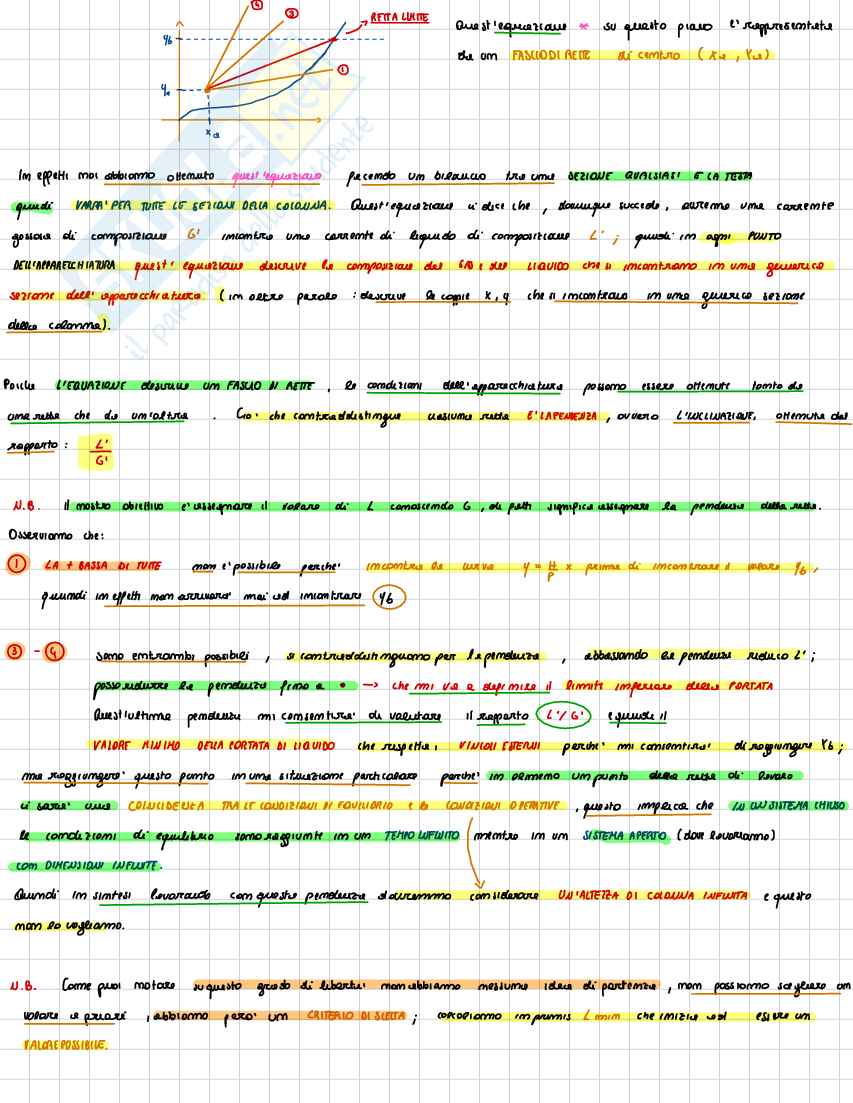 ④ ③ RETTA LIMITE
y6
①
ya
xa
Quest'equazione * su questo piano è rappresentata
da un FASCIO DI RETTE di centro (xa, Ya)
Im effetti noi abbiamo ottenuto quest'equazione facendo un bilancio tra una SEZIONE QUALSIASI E LA TESTA
quindi VARRA' PER TUTTE LE SEZIONI DELLA COLONNA. Quest'equazione ci dice che, dovunque succede, avremo una corrente
gassosa di composizione G' incontra una corrente di liquido di composizione L'; quindi in ogni PUNTO
DELL'APPARECCHIATURA quest'equazione descrive le composizioni del GAS e del LIQUIDO che si incontrano in una generica
sezione dell'apparecchiatura (in altre parole: descrive le coppie x,y che si incontrano in una generica sezione
della colonna).
Poiché L'EQUAZIONE descrive un FASCIO DI RETTE, le condizioni dell'apparecchiatura possono essere ottenute tanto da
una retta che da un'altra. Cio' che contraddistingue ciascuna retta E' LA PENDENZA, ovvero L'INCLINAZIONE, ottenuta dal
rapporto: L'/G'
N.B. il nostro obiettivo e' assegnare il valore di L conoscendo G, di fatti significa assegnare la pendenza della retta.
Osserviamo che:
① LA + BASSA DI TUTTE non e' possibile perche' incontra la curva y = H/P x prima di incontrare il valore y6,
quindi in effetti non arrivera' mai ad incontrare y6
③ - ④ sono entrambi possibili, si contraddistinguono per la pendenza, abbassando la pendenza riduco L';
posso ridurre la pendenza fino a • → che mi va a definire il limite inferiore della PORTATA
Quest'ultima pendenza mi consentira' di valutare il rapporto L'/G' e quindi il
VALORE MINIMO DELLA PORTATA DI LIQUIDO che rispetta i VINCOLI ESTERNI perche' mi consentira' di raggiungere Y6;
ma raggiungera' questo punto in una situazione particolare perche' in almeno un punto della retta di lavoro
ci sara' una COINCIDENZA TRA LE CONDIZIONI DI EQUILIBRIO e le CONDIZIONI OPERATIVE, questo implica che IN UN SISTEMA CHIUSO
le condizioni di equilibrio sono raggiunte in un TEMPO INFINITO mentre in un SISTEMA APERTO (dove lavoriamo)
con DIMENSIONI INFINITE.
Quindi in sintesi lavorando con questa pendenza dovremmo considerare UN'ALTEZZA DI COLONNA INFINITA e questo
non lo vogliamo.
N.B. Come puoi notare su questo grado di liberta' non abbiamo nessuna idea di partenza, non possiamo scegliere un
valore a priori, abbiamo pero' un CRITERIO DI SCELTA; calcoliamo in primis L min che inizia ad essere un
VALORE POSSIBILE.